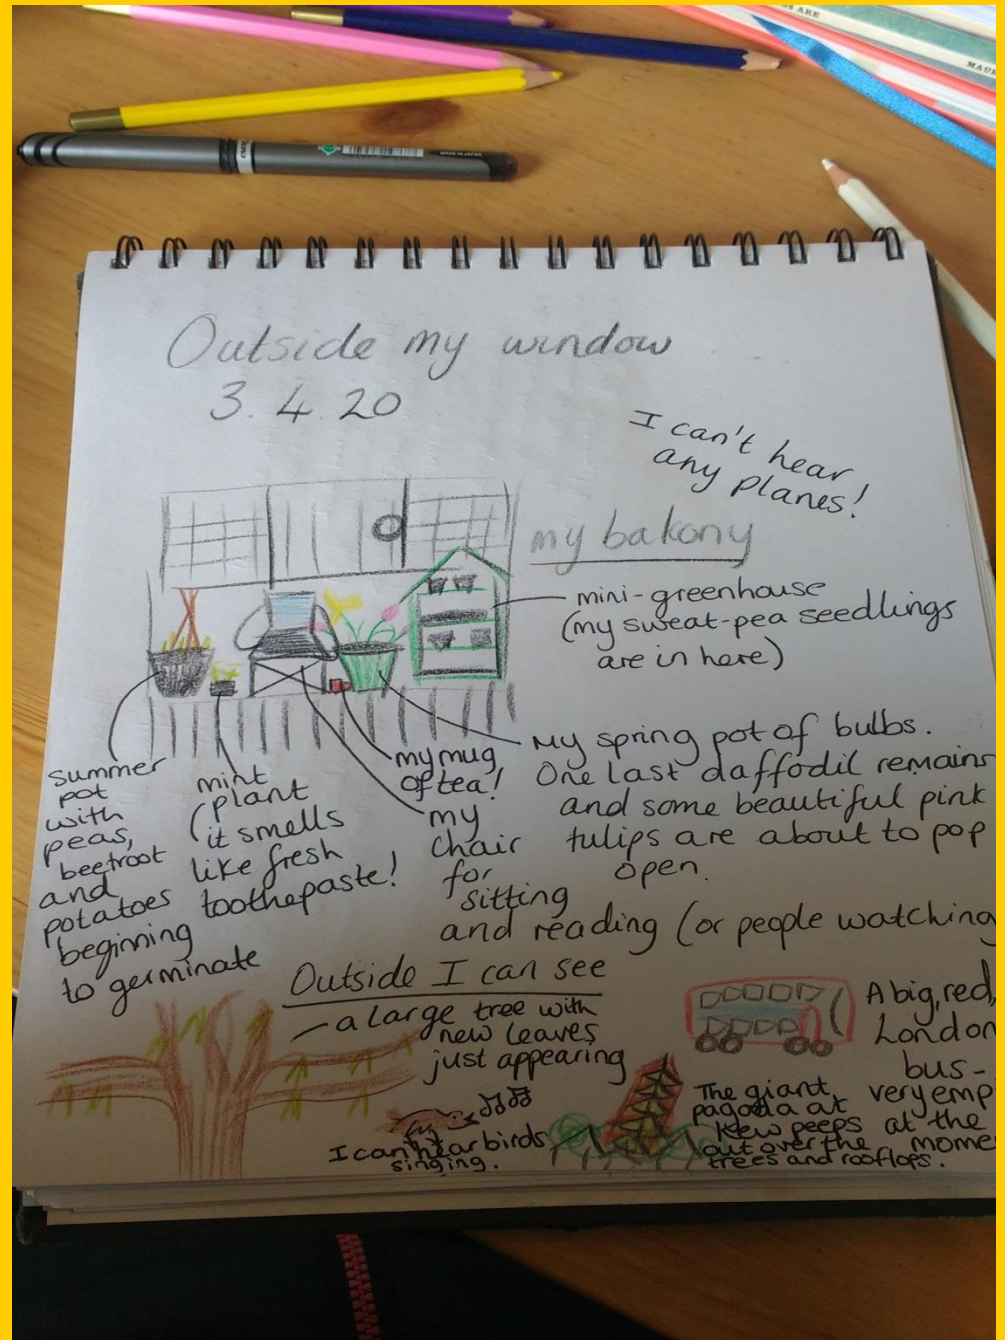 Outside my window
3.4.20
I can't hear
any planes!
my balkony
mini-greenhouse
(my sweat-pea seedlings
are in here)
My spring pot of bulbs.
One last daffodil remains
and some beautiful pink
tulips are about to pop
open.
my mug
of tea!
my
chair
for
sitting
and reading (or people watching
mint
plant
(it smells
like fresh
toothepaste!
summer
pot
with
peas,
beetroot
and
potatoes
beginning
to germinate
Outside I can see
a large tree with
new leaves
just appearing
I can hear birds
singing.
The giant
pagoda at
Kew peeps
out over the
trees and rooftops.
A big, red,
London
bus -
very emp
at the
mome